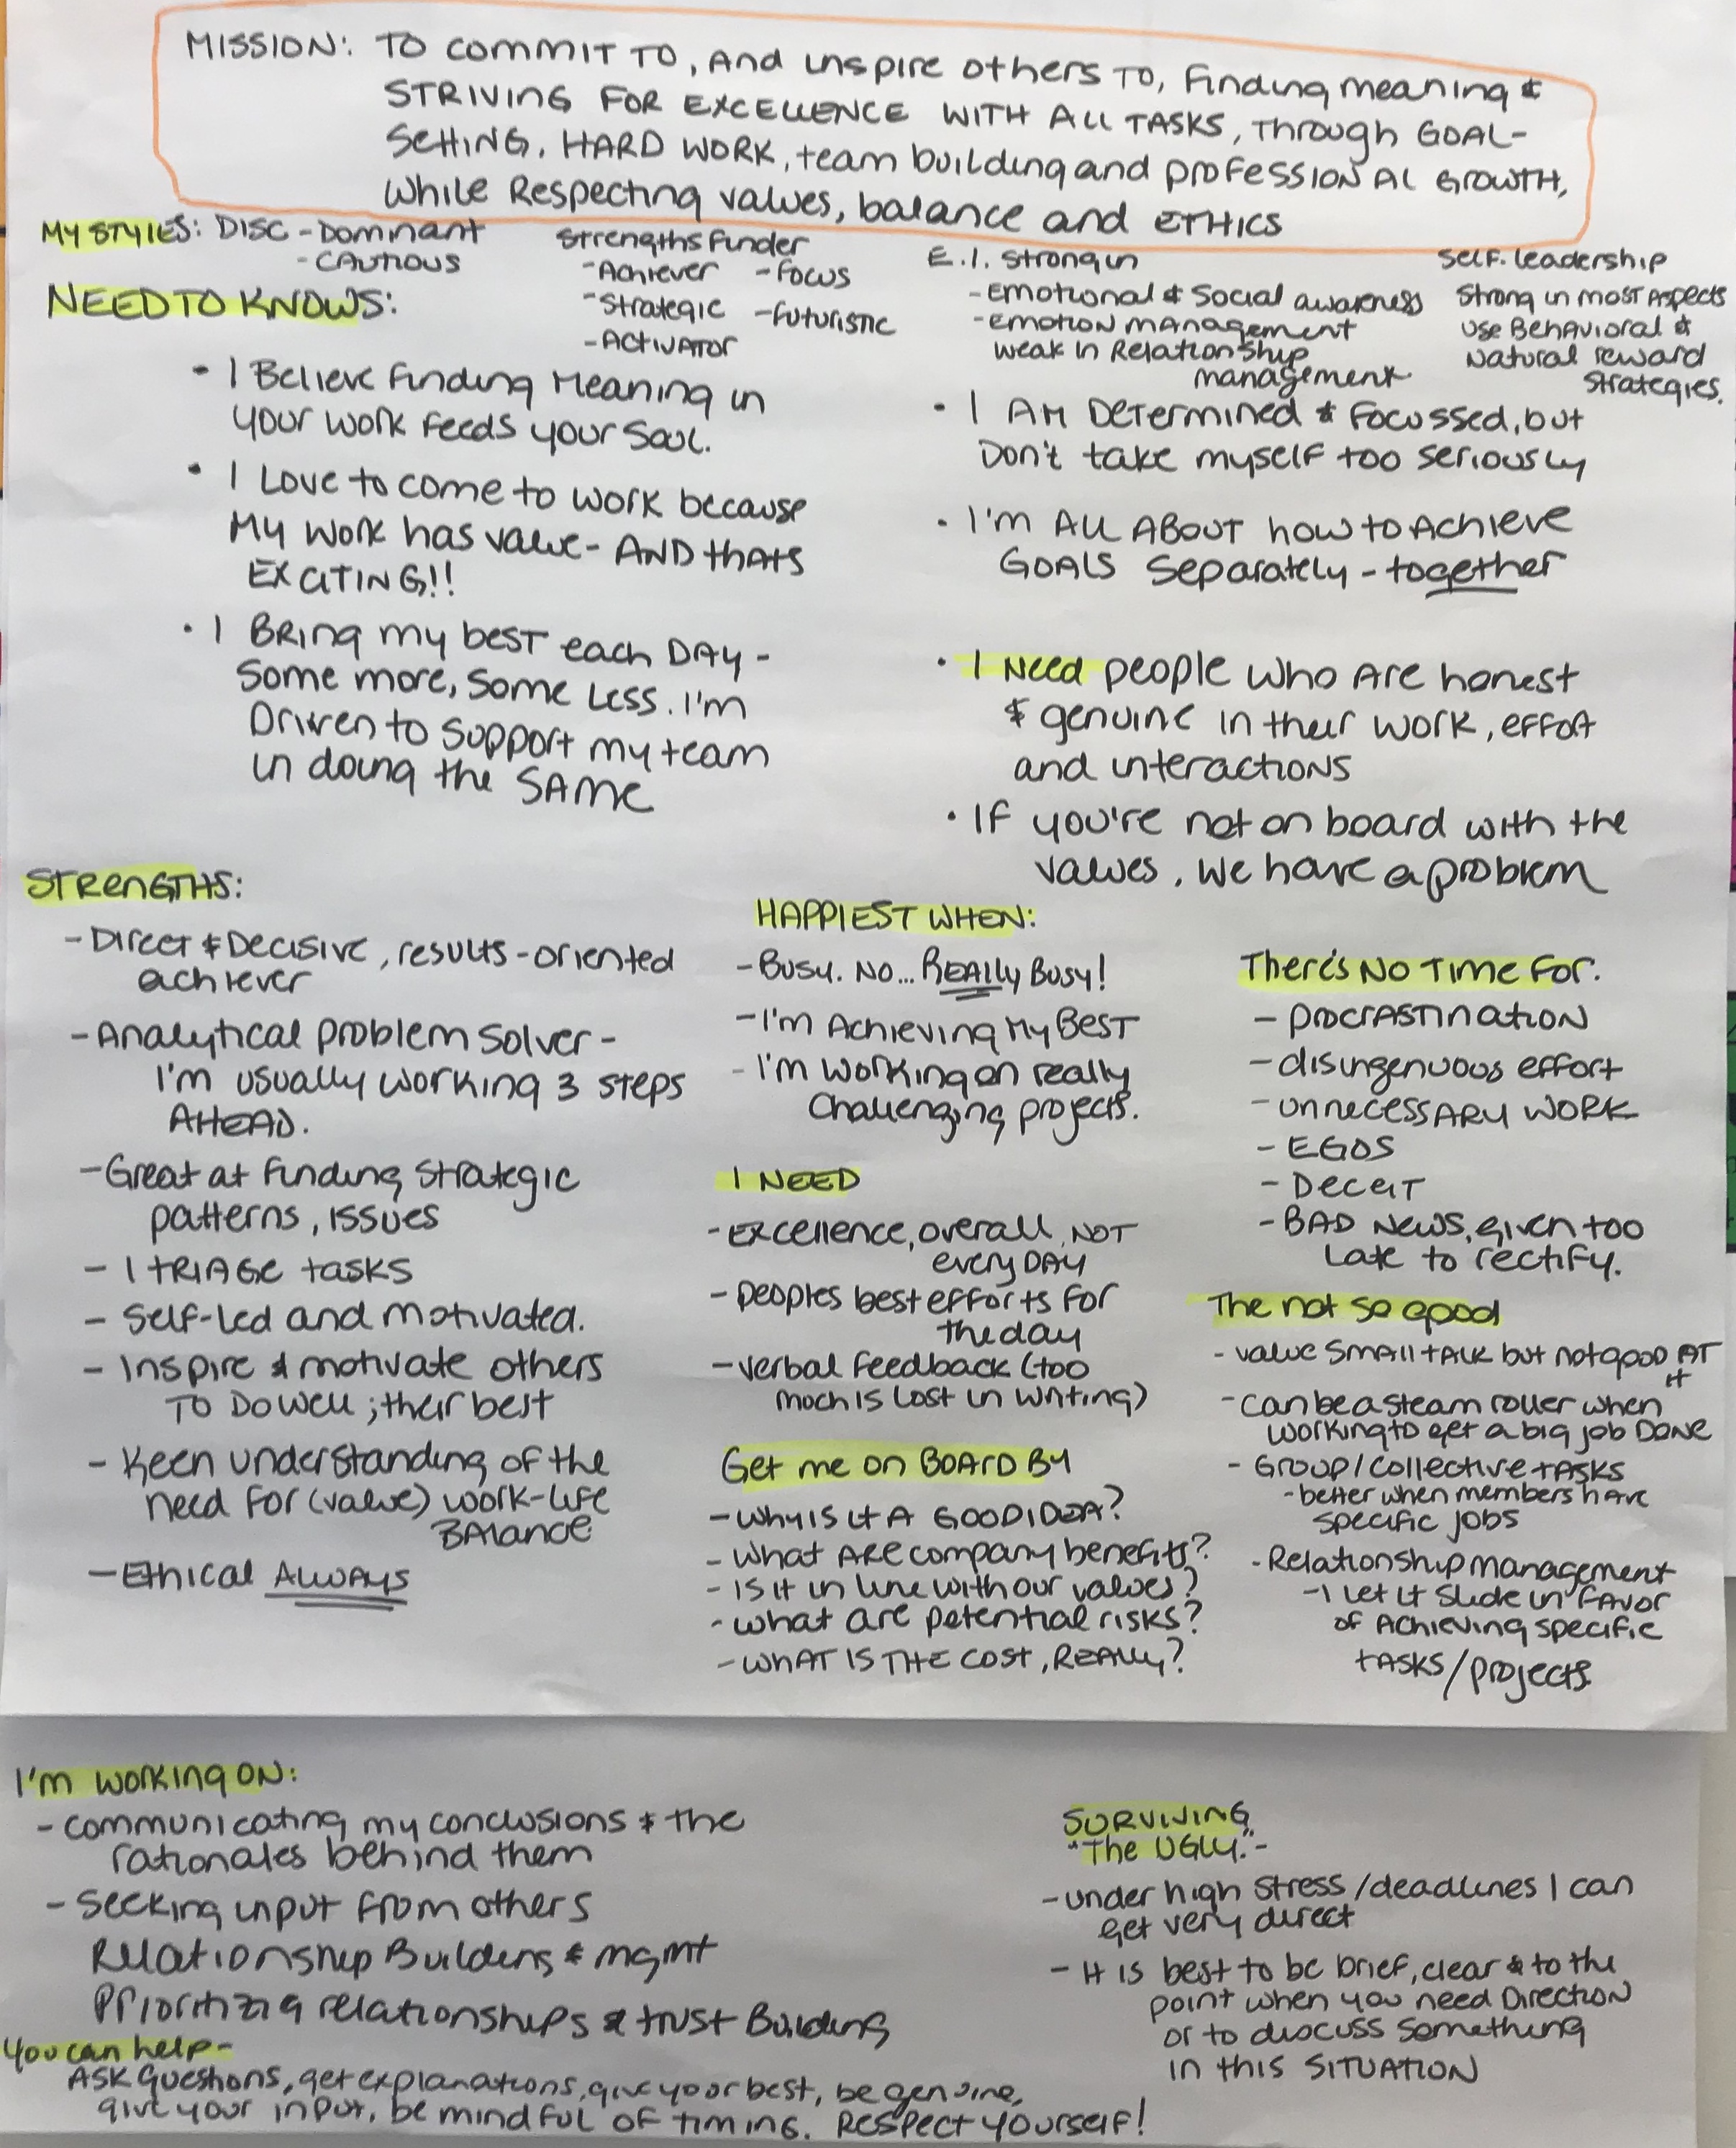 MISSION: TO COMMIT TO, And inspire others TO, Finding meaning &
STRIVING FOR EXCELLENCE WITH ALL TASKS, Through GOAL-
SettiNG, HARD WORK, team building and PROFESSIONAL GROWTH,
While Respecting values, balance and ETHICS
MY STYLES: DISC - Dominant
- CAUTIOUS
Strengths Finder
- Achiever - Focus
- Strategic - Futuristic
- ACTIVATOR
E.I. Strong in
- Emotional & Social awareness
- Emotion management
weak in Relationship
management
Self-leadership
Strong in most Aspects
use Behavioral &
Natural reward
strategies.
NEED TO KNOWS:
• I Believe Finding Meaning in
your work Feeds your Soul.
• I Love to come to work because
My work has value - AND thats
EXCITING!!
• I BRing my best each DAY -
Some more, Some Less. I'm
Driven to support my team
in doing the SAME
• I AM Determined & Focussed, but
Don't take myself too seriously
• I'm ALL ABOUT how to Achieve
GOALS Separately - together
• I Need people who Are honest
& genuine in their work, effort
and interactions
• IF you're not on board with the
values, we have a problem
STRENGTHS:
- Direct & Decisive, results-oriented
achiever
- Analytical problem Solver -
I'm usually working 3 steps
AHEAD.
- Great at finding Strategic
patterns, issues
- I TRIAGE tasks
- Self-Led and Motivated.
- Inspire & motivate others
TO DO Well; their best
- Keen understanding of the
need for (value) work-life
BALance
- Ethical ALWAYS
HAPPIEST WHEN:
- Busy. No... REALLY Busy!
- I'm Achieving My Best
- I'm working on really
Challenging projects.
I NEED
- Excellence, overall, NOT
every DAY
- peoples best efforts for
the day
- verbal feedback (too
much is Lost in writing)
Get me on BOARD By
- Why is it A GOOD IDEA?
- What ARE company benefits?
- Is it in line with our values?
- What are potential risks?
- WHAT IS THE COST, REALLY?
There's No Time For:
- PROCRASTINATION
- disingenuous effort
- UNNECESSARY WORK
- EGOS
- Deceit
- BAD News, given too
Late to rectify.
The not so good
- value SMALL tALK but not good AT
it
- Can be a steam roller when
working to get a big job DONE
- Group/collective tASKS
- better when members hAVE
specific jobs
- Relationship management
- I Let it Slide in FAVOR
of Achieving specific
tASKS/projects.
I'm working ON:
- Communicating my conclusions & the
rationales behind them
- Seeking input from others
Relationship Building & mgmt
Prioritizing relationships & trust Building
You can help -
ASK Questions, get explanations, give your best, be genuine,
give your input, be mindful of timing. Respect yourself!
SURVIVING
"The UGLY." -
- under high stress/deadlines I can
get very direct
- It is best to be brief, clear & to the
point when you need Direction
or to discuss something
in this SITUATION